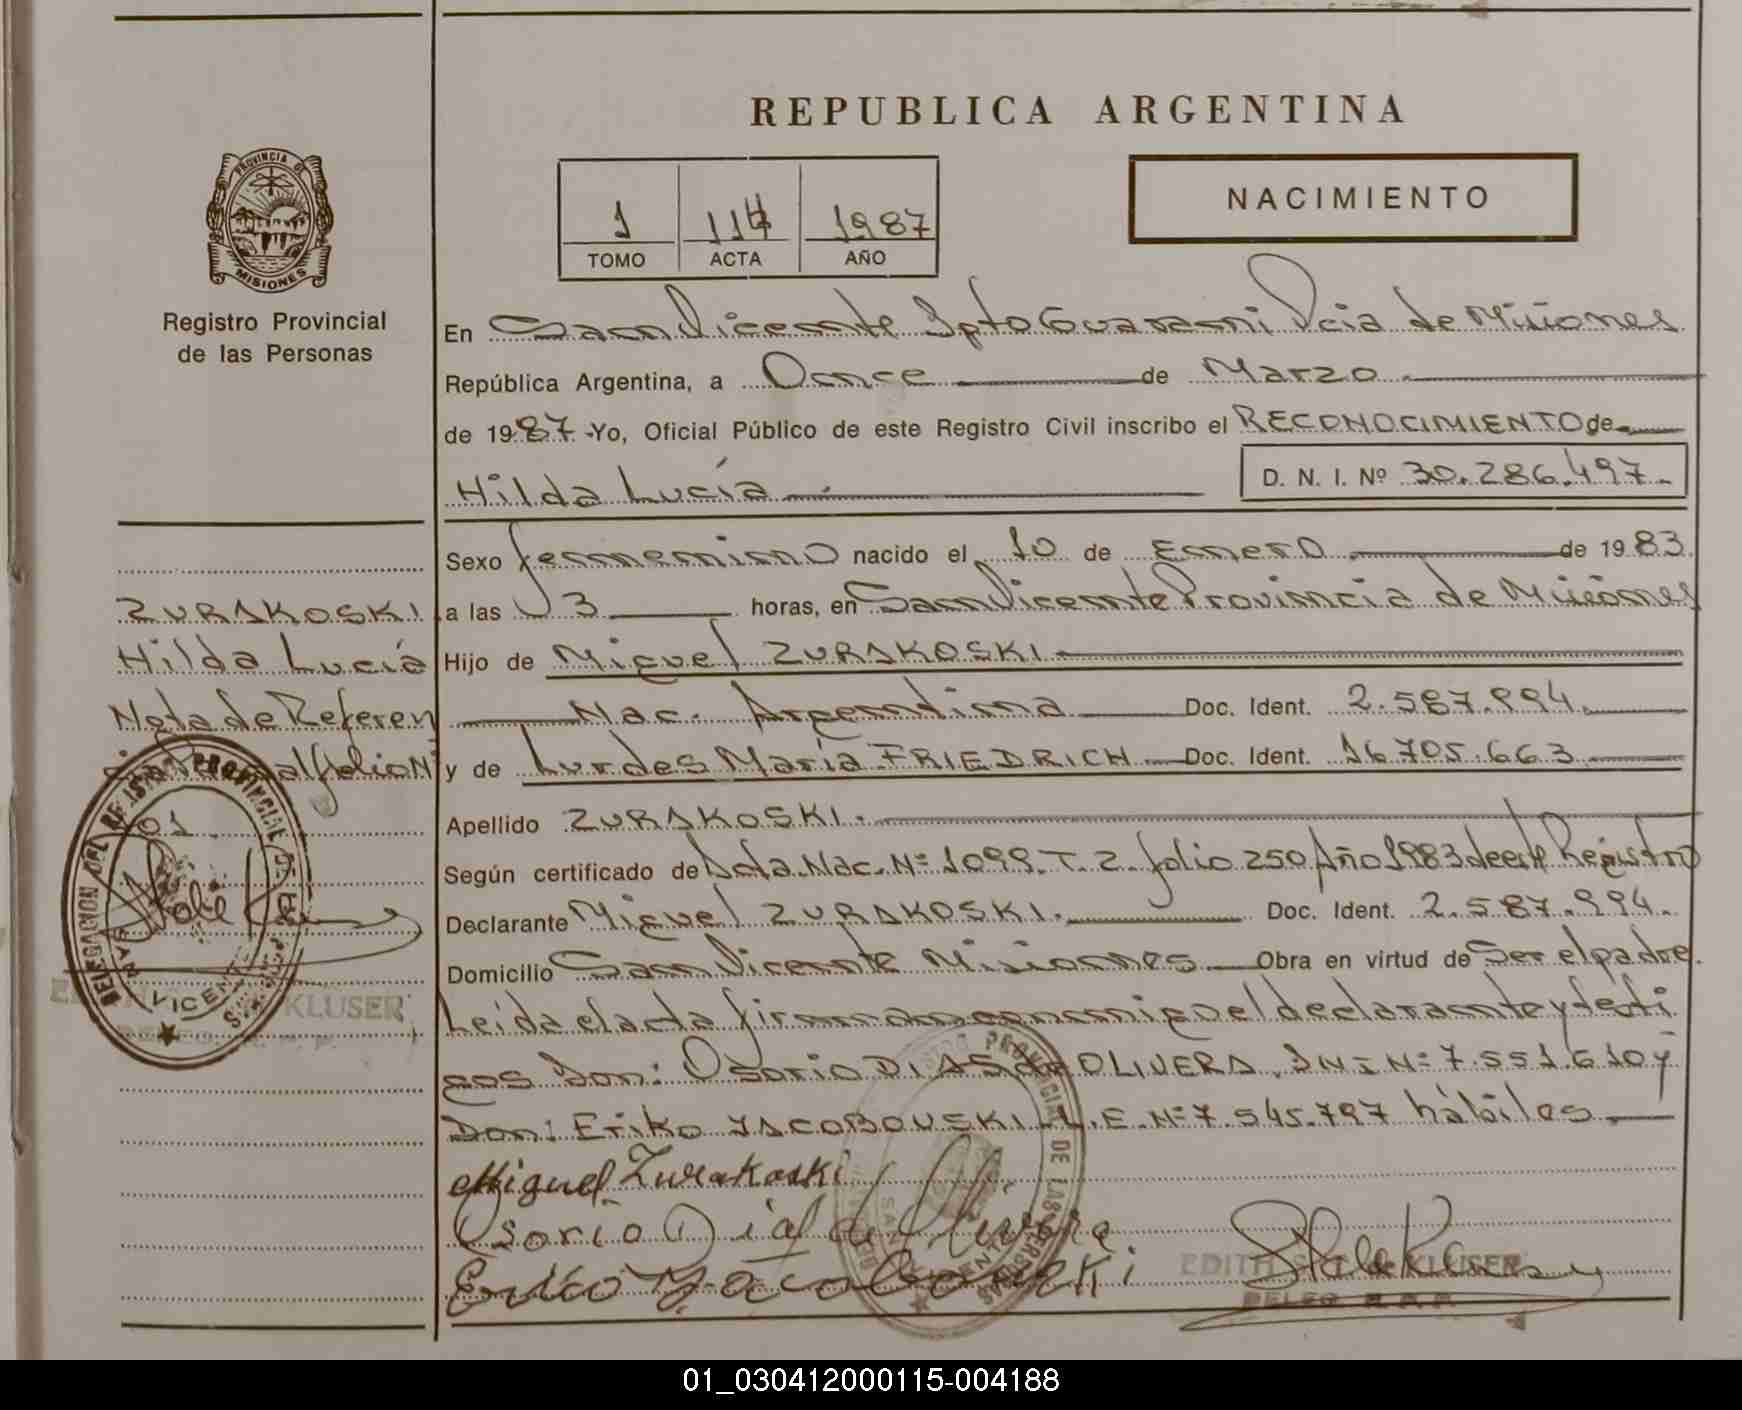 REPUBLICA ARGENTINA
NACIMIENTO
1 114 1987
TOMO ACTA AÑO
PROVINCIA DE
MISIONES
Registro Provincial
de las Personas
En San Vicente Dpto Guarani Pcia de Misiones
República Argentina, a Once de Marzo
de 1987. Yo, Oficial Público de este Registro Civil inscribo el RECONOCIMIENTO de
Hilda Lucía D. N. I. Nº 30.286.497.
Sexo femenino nacido el 10 de Enero de 1983.
a las 3 horas, en San Vicente Provincia de Misiones
Hijo de Miguel ZURAKOSKI
Nac. Argentina Doc. Ident. 2.587.994.
y de Lurdes María FRIEDRICH Doc. Ident. 16.705.663
Apellido ZURAKOSKI.
Según certificado de Acta. Nac. Nº 1099. T. 2. folio 250 Año 1983 de este Registro
Declarante Miguel ZURAKOSKI. Doc. Ident. 2.587.994.
Domicilio San Vicente Misiones Obra en virtud de Ser el padre.
Leída el acta firman conmigo el declarante y testi
gos Don: Osorio DIAS de OLIVERA. DNI Nº 7.551.610 y
Don: Eriko JACOBOUSKI L.E. Nº 7.545.797 hábiles
Miguel Zurakoski
Osorio Dias de Olivera
Eriko Jacobouski
EDITH KLUSER
ZURAKOSKI
Hilda Lucía
Nota de Referen
cia al folio Nº
01
DELEGACION DEL REGISTRO PROVINCIAL DE LAS PERSONAS
SAN VICENTE
KLUSER
01_030412000115-004188